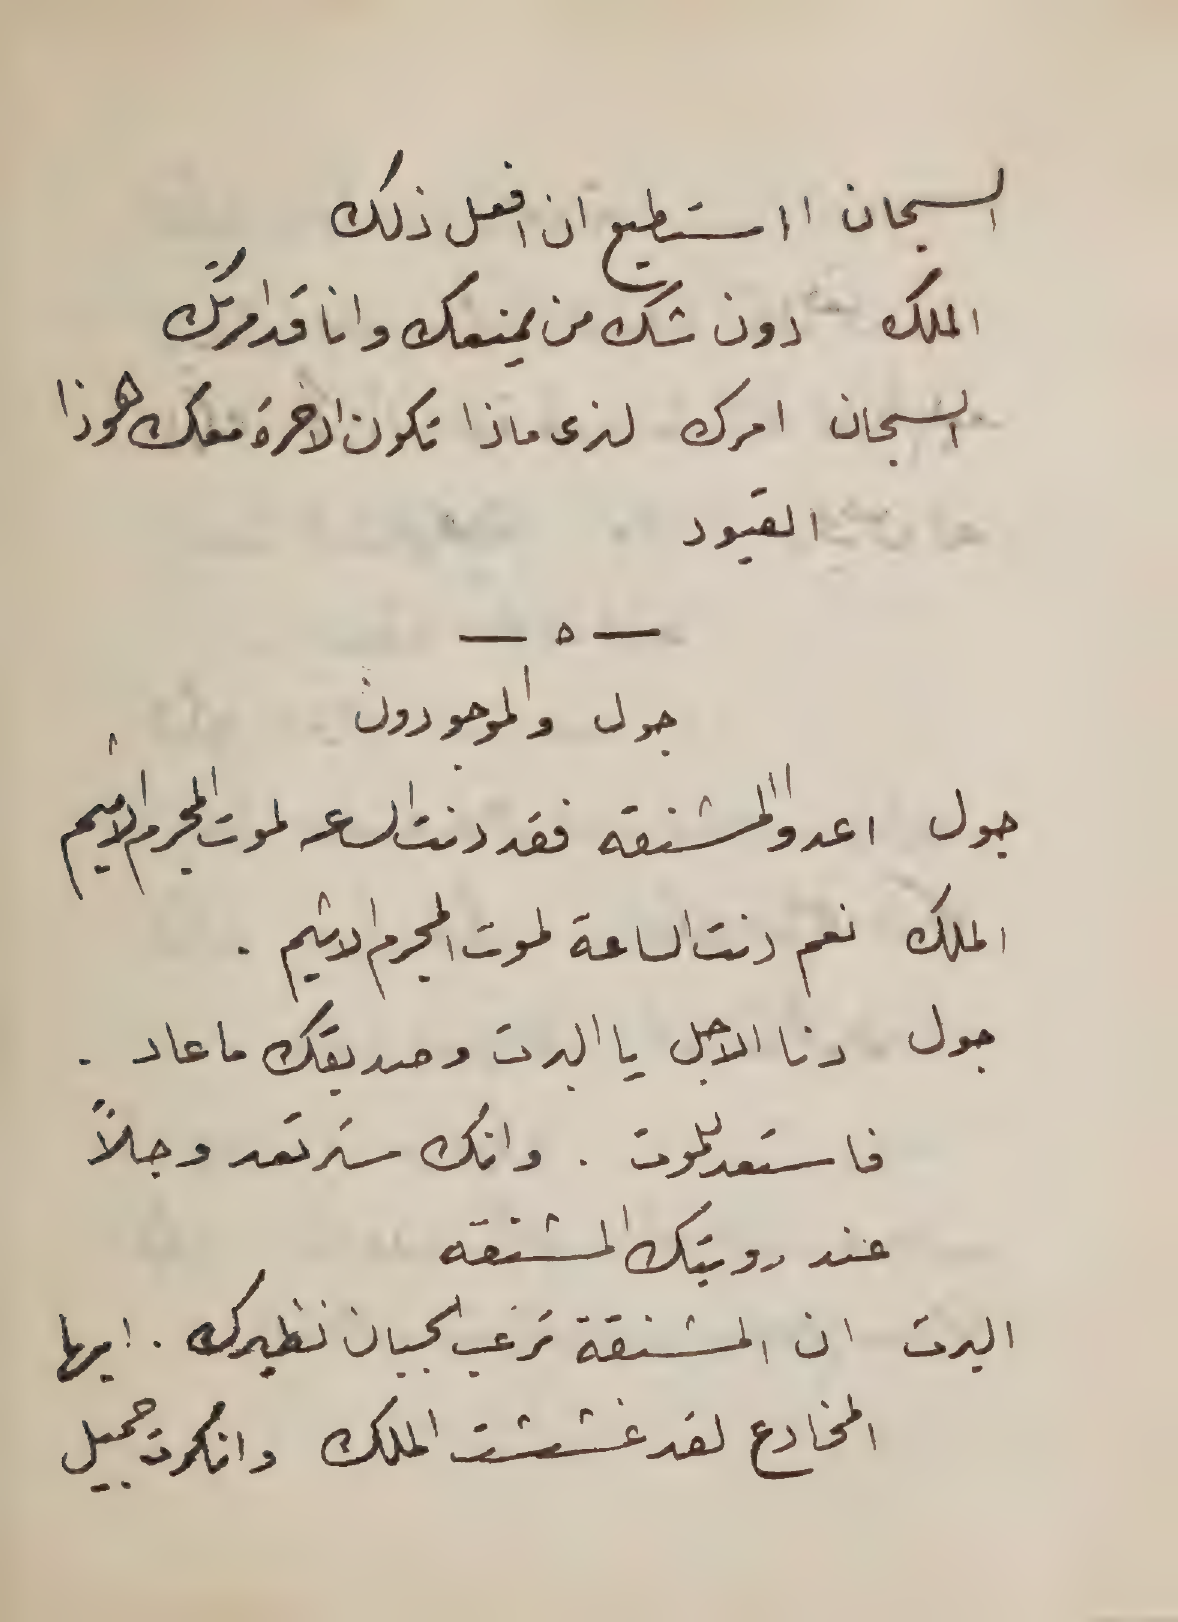 السجان أاستطيع ان افعل ذلك
الملك دون شك من يمنعك وانا قد امرتك
السجان امرك لنرى ماذا تكون الاخرة معك هوذا
القيود
— ه —
جول والموجودون
جول اعدوا المشنقه فقد دنت الساعه لموت المجرم الاثيم
الملك نعم دنت الساعة لموت المجرم الاثيم .
جول دنا الاجل يا البرت وصديقك ما عاد .
فاستعد للموت . وانك سترتعد وجلاً
عند رويتك المشنقه
البرت ان المشنقة ترعب الجبان نظيرك . ايها
المخادع لقد غششت الملك وانكرت جميل